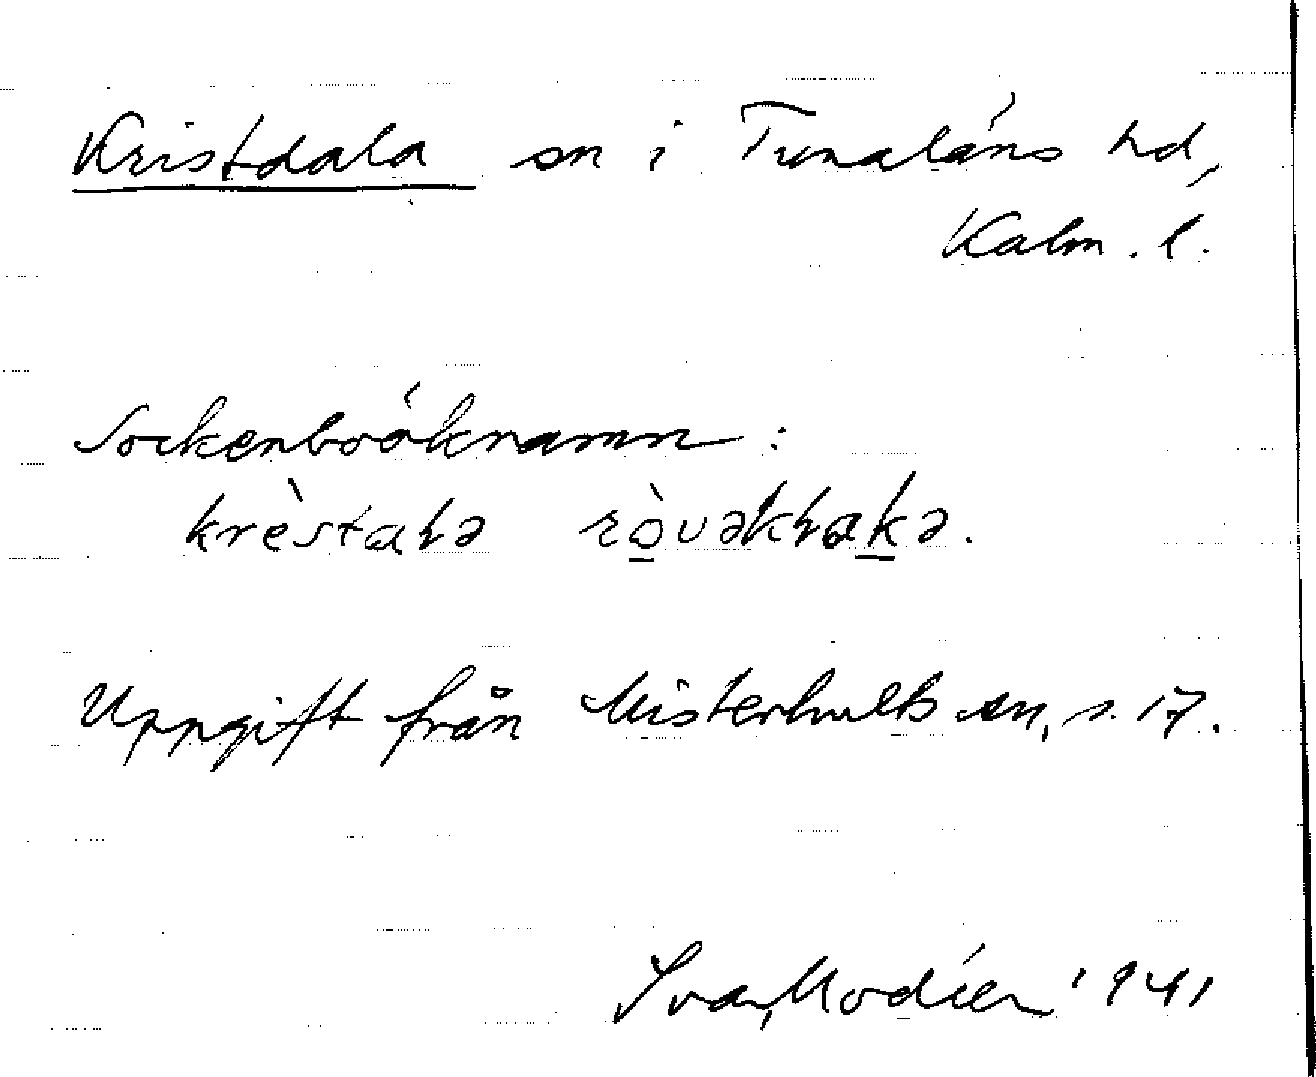 Kristdala sn i Tunaläns hd,
Kalm. l.
Sockenboöknamn:
krèstaɫa ròvəkɫakə.
Uppgift från Misterhults sn, s. 17.
Ivar Modéer 1941